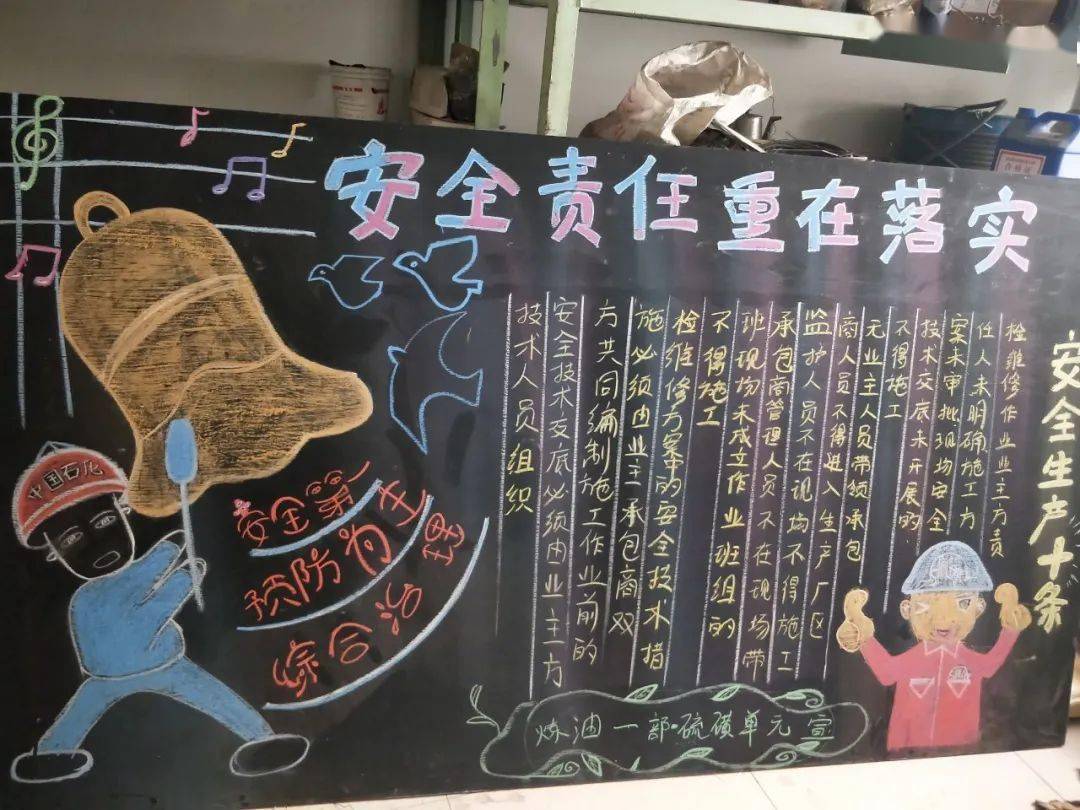 安全责任重在落实
安全生产十条
检维修作业业主方责
任人未明确施工方
案未审批现场安全
技术交底未开展的
不得施工
无业主人员带领承包
商人员不得进入生产厂区
监护人员不在现场不得施工
承包商管理人员不在现场带
班现场未成立作业班组的
不得施工
检维修方案中的安全技术措
施必须由业主承包商双
方共同编制施工作业前的
安全技术交底必须由业主方
技术人员组织
中国石化
安全第一
预防为主
综合治理
炼油一部·硫磺单元 宣